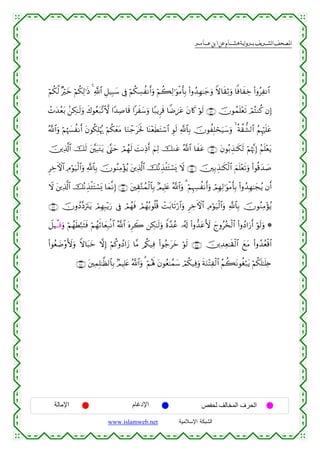 المصحف الشريف برواية هشام عن ابن عامر
ٱنفِرُواْ خِفَافًا وَثِقَالًا وَجَٰهِدُواْ بِأَمْوَٰلِكُمْ وَأَنفُسِكُمْ فِى سَبِيلِ ٱللَّهِ ذَٰلِكُمْ خَيْرٌ لَّكُمْ
إِن كُنتُمْ تَعْلَمُونَ لَوْ كَانَ عَرَضًا قَرِيبًا وَسَفَرًا قَاصِدًا لَّٱتَّبَعُوكَ وَلَٰكِنۢ بَعُدَتْ
عَلَيْهِمُ ٱلشُّقَّةُ وَسَيَحْلِفُونَ بِٱللَّهِ لَوِ ٱسْتَطَعْنَا لَخَرَجْنَا مَعَكُمْ يُهْلِكُونَ أَنفُسَهُمْ وَٱللَّهُ
يَعْلَمُ إِنَّهُمْ لَكَٰذِبُونَ عَفَا ٱللَّهُ عَنكَ لِمَ أَذِنتَ لَهُمْ حَتَّىٰ يَتَبَيَّنَ لَكَ ٱلَّذِينَ
صَدَقُواْ وَتَعْلَمَ ٱلْكَٰذِبِينَ لَا يَسْتَـْٔذِنُكَ ٱلَّذِينَ يُؤْمِنُونَ بِٱللَّهِ وَٱلْيَوْمِ ٱلْـَٔاخِرِ
أَن يُجَٰهِدُواْ بِأَمْوَٰلِهِمْ وَأَنفُسِهِمْ وَٱللَّهُ عَلِيمٌۢ بِٱلْمُتَّقِينَ إِنَّمَا يَسْتَـْٔذِنُكَ ٱلَّذِينَ لَا
يُؤْمِنُونَ بِٱللَّهِ وَٱلْيَوْمِ ٱلْـَٔاخِرِ وَٱرْتَابَتْ قُلُوبُهُمْ فَهُمْ فِى رَيْبِهِمْ يَتَرَدَّدُونَ
۞ وَلَوْ أَرَادُواْ ٱلْخُرُوجَ لَأَعَدُّواْ لَهُۥ عُدَّةً وَلَٰكِن كَرِهَ ٱللَّهُ ٱنۢبِعَاثَهُمْ فَثَبَّطَهُمْ وَقِيلَ
ٱقْعُدُواْ مَعَ ٱلْقَٰعِدِينَ لَوْ خَرَجُواْ فِيكُم مَّا زَادُوكُمْ إِلَّا خَبَالًا وَلَأَوْضَعُواْ
خِلَٰلَكُمْ يَبْغُونَكُمُ ٱلْفِتْنَةَ وَفِيكُمْ سَمَّٰعُونَ لَهُمْ وَٱللَّهُ عَلِيمٌۢ بِٱلظَّٰلِمِينَ
الحرف المخالف لحفص الإدغام الإمالة
الشبكة الإسلامية www.islamweb.net